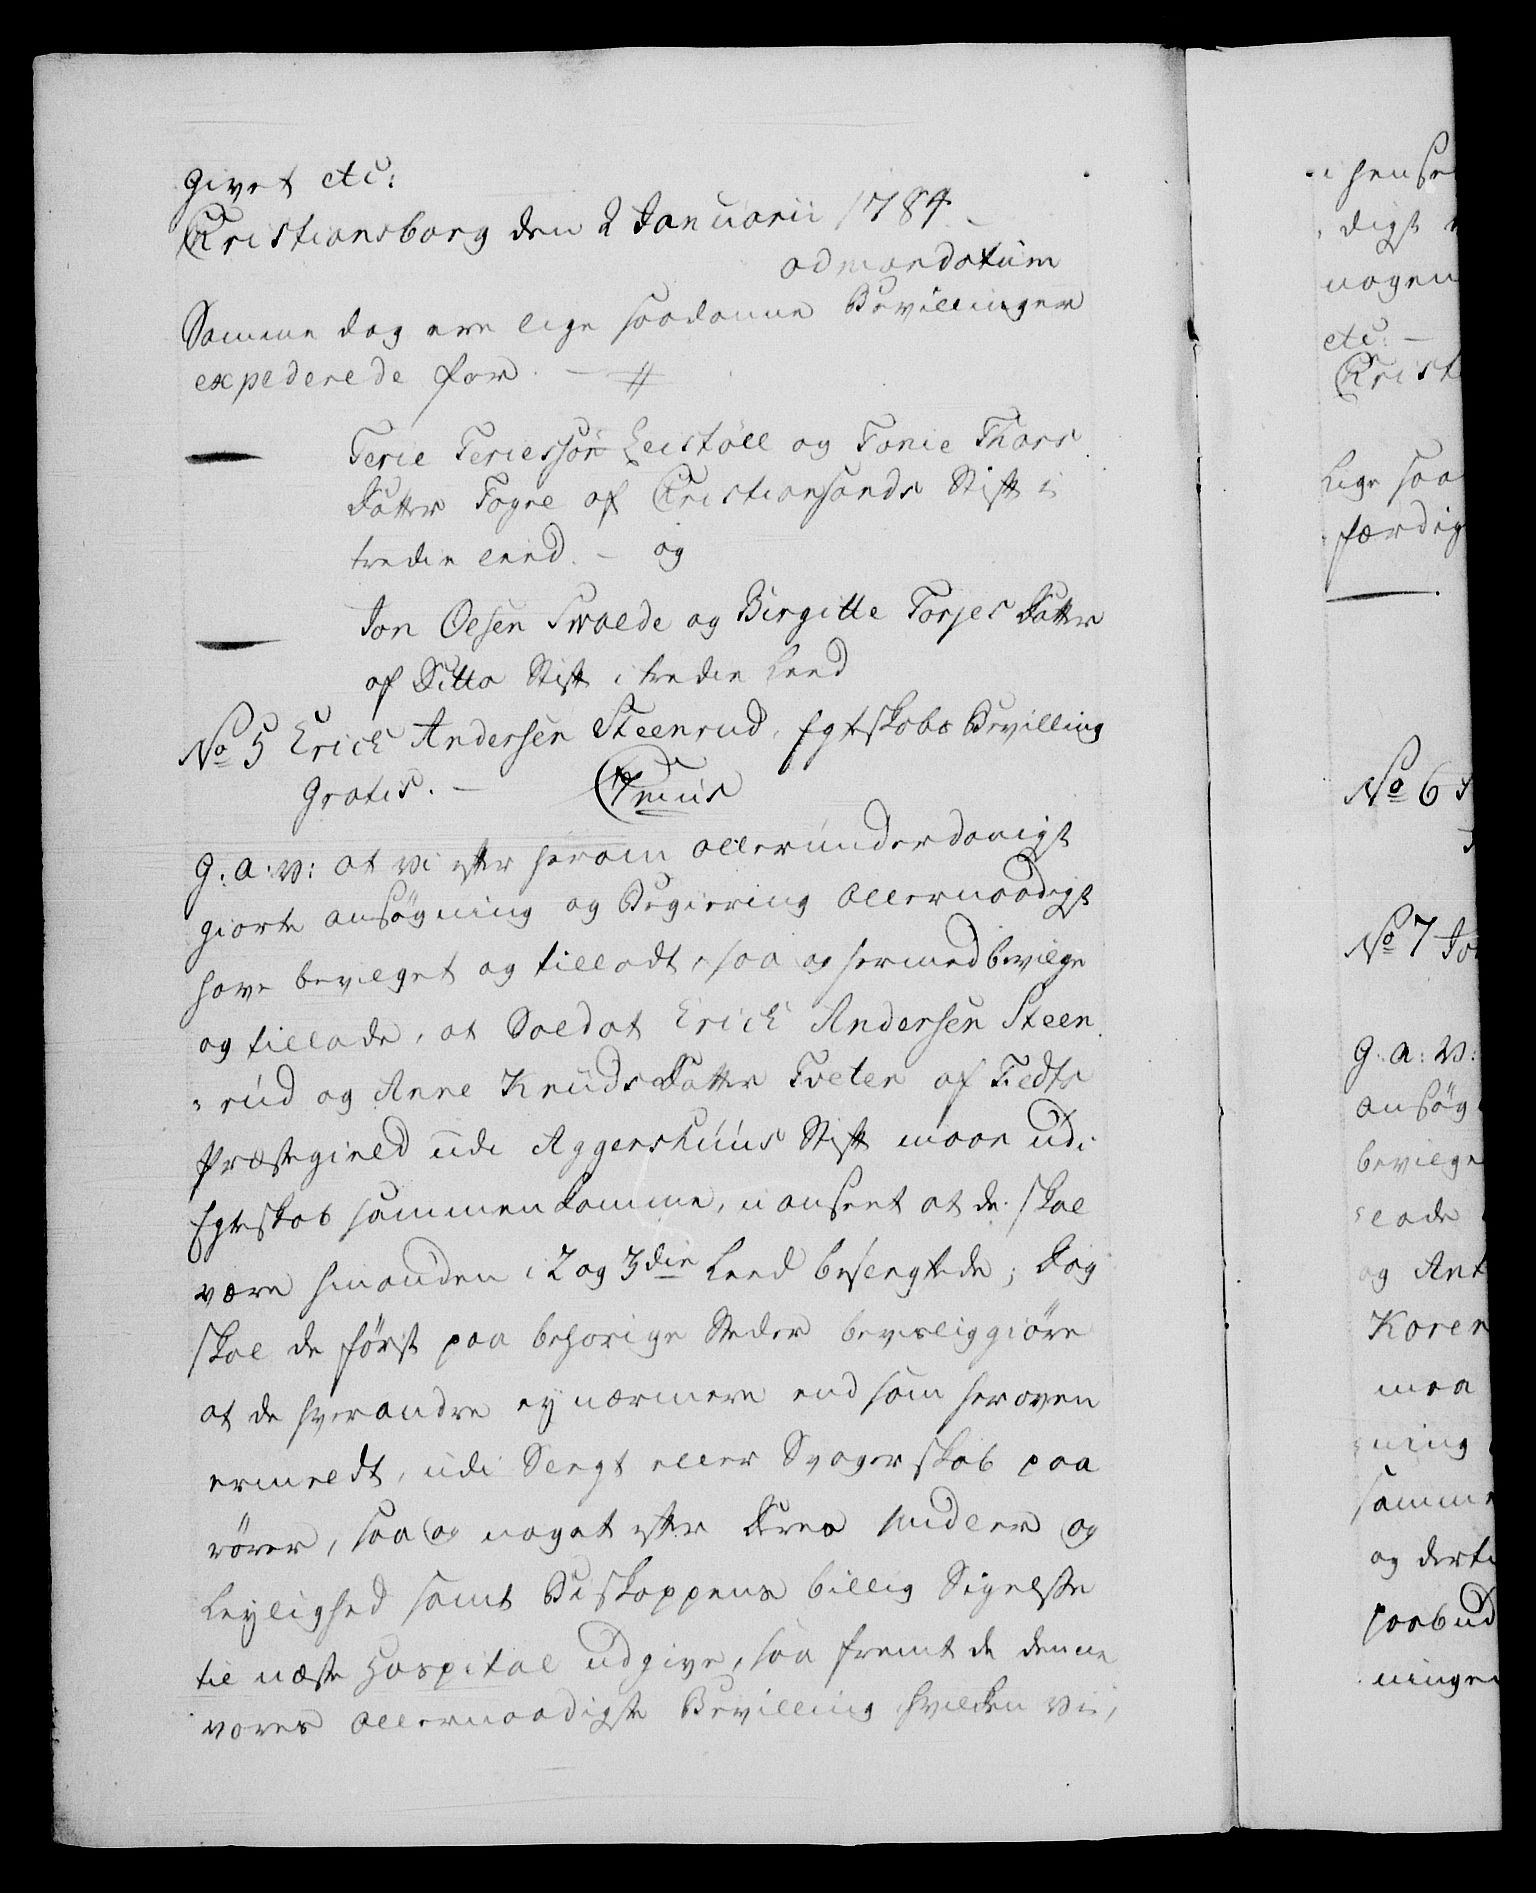 Givet etc:
Christiansborg den 2 Januarii 1784
ad mandatum
Samme dag ere lige saadanne Bevillinger
expederede for. — #
— Terie Teriessøn Leistøll og Tonie Thors
Datter Togne af Christiansands Stift i
tredie Leed. — og
— Jon Olsen Svalde og Birgitte Torjes Datter
af Ditto Stift i tredie Leed
No 5 Erich Andersen Steenrud, Egteskabs Bevilling
Gratis. —
G: A: V: at vi efter herom allerunderdanigst
giorte ansøgning og Begiering allernaadigst
have bevilget og tilladt, saa og hermed bevilge
og tillade, at Soldat Erich Andersen Steen
= rud og Anne Knuds Datter Tveten af
Præstegield udi Aggershuus Stift maae udi
Egteskab sammenkomme, uanseet at de skal
være hinanden i 2 og 3die Leed beslegtede; Dog
skal de først paa behørige Steder bevisliggiøre
at de hverandre ey nærmere end som heroven
ermeldt, udi Slegt eller Svogerskab paa
rører, saa og noget efter deres Midler og
Leylighed samt Biskoppens billig Sigelse
til næste Hospital udgive, saa fremt de denne
vores allernaadigste Bevilling hvilken vi,
digst
nogen
etc: —
Christ
Lige saa
færdig
No 6
No 7 Jo
G: A: V:
ansøg
bevilge
lade
og Ant
Koren
maa
ning
samme
og derti
forbud
ningen